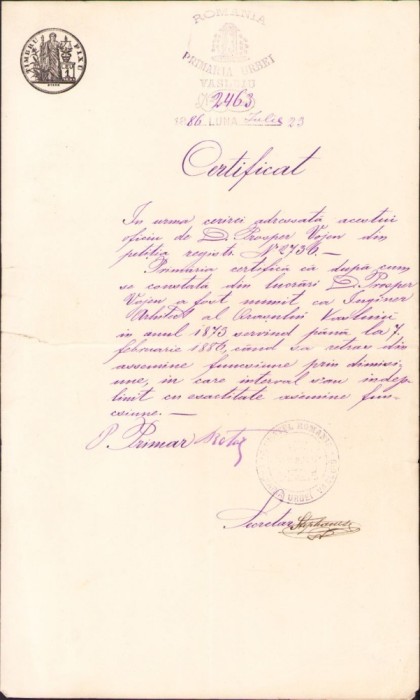 TIMBRU FIX
ROMANIA
PRIMARIA URBEI
VASLUIU
No 2463
1886 LUNA Iulie 23
Certificat
In urma cerirei adresată acestui
oficiu de D. Prosper Vojeu din
petitia registr. No 2736.—
Primaria certifică că după cum
se constata din lucrări D. Prosper
Vojeu a fost numit ca Inginer
Arhitect al Orasului Vasluiŭ
in anul 1873 servind până la 7
februarie 1886, când sa retras din
assemine funcsiune prin dimisi-
une, in care interval sau indep-
linit cu exactitate asemine fun-
csiune.—
P. Primar
Secretar